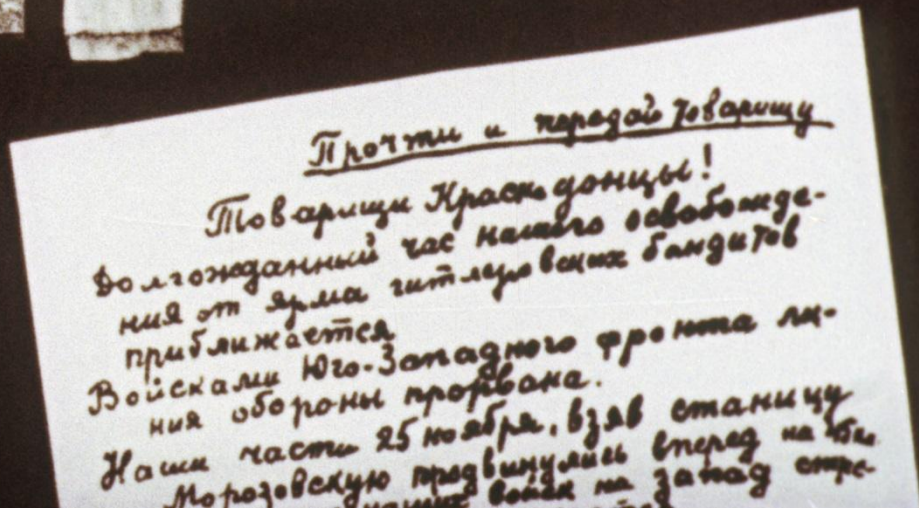 Прочти и передай товарищу
Товарищи Краснодонцы!
Долгожданный час нашего освобожде-
ния от ярма гитлеровских бандитов
приближается
Войсками Юго-Западного фронта ли-
ния обороны прорвана.
Наши части 25 ноября, взяв станицу
Морозовскую продвинулись вперед на
войск на запад стре-